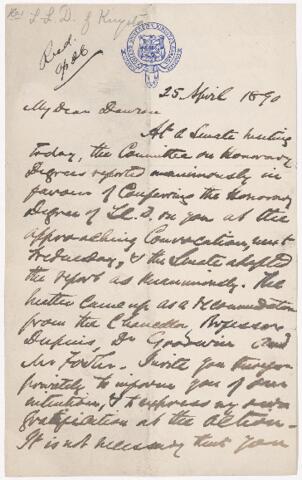 Re LL.D. of Kingston
Recd.
25 April 1890
My dear Dawson
At a Senate meeting
today, the Committee on Honorary
Degrees reported unanimously in
favour of Conferring the Honorary
Degree of LL.D. on you at the
approaching Convocation, next
Wednesday, & the Senate adopted
the report as unanimously. The
matter came up as a recommendation
from the Chancellor, Professor
Dupuis, Dr Goodwin and
Mr Foster. I write you
privately to inform you of our
intention, & to express my own
gratification at the action.
It is not necessary that you